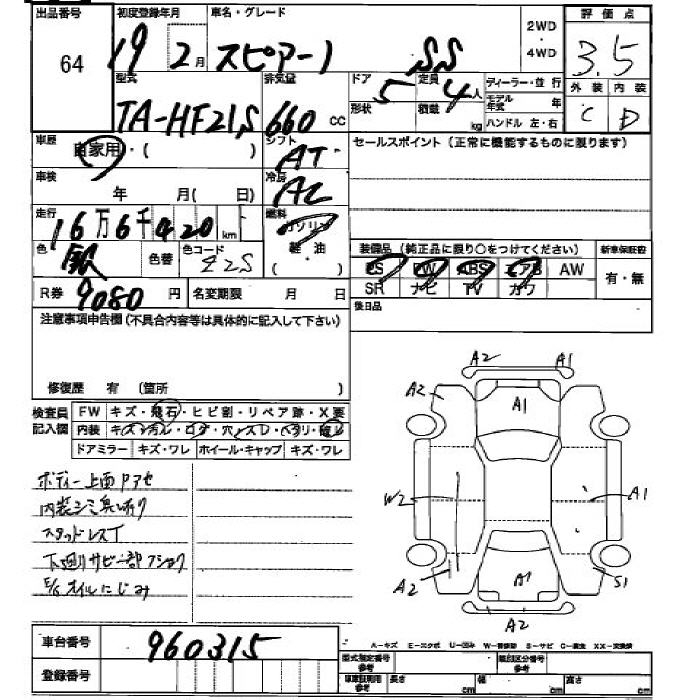 出品番号 初度登録年月 車名・グレード 2WD・4WD 評価点
64 19 2月 スピアーノ SS 3.5
型式 排気量 ドア 5 定員 4人 ディーラー・並行 外装 内装
TA-HF21S 660 cc 形状 積載 kg モデル年式 年 C D
ハンドル 左・右
車歴 自家用・( ) シフト AT セールスポイント(正常に機能するものに限ります)
車検 年 月( 日) 冷房 AC
走行 16万6千420 km 燃料 ガソリン
色 銀 色替 色コード Z2S 軽・油 装備品(純正品に限り○をつけてください) 新車保証書
PS PW ABS エアB AW 有・無
SR ナビ TV カワ
R券 9080円 名変期限 月 日 後日品
注意事項申告欄(不具合内容等は具体的に記入して下さい)
修復歴 有 (箇所 )
検査員記入欄 FW キズ・飛石・ヒビ割・リペア跡・X要
内装 キズ・汚ル・コゲ・穴・スレ・ヘタリ・破レ
ドアミラー キズ・ワレ ホイール・キャップ キズ・ワレ
ボディー上面
内装シミ臭い有り
スタッドレスT
下廻りサビ一部
E/Gオイルにじみ
A2 A1
A2 A1
W2 A1
A2 A1 S1
A2
車台番号 960315
A-キズ E-エクボ U-凹み W-補修跡 S-サビ C-腐食 XX-交換済
登録番号 型式指定番号参考 類別区分番号参考
車庫証明用参考 長さ cm 幅 cm 高さ cm